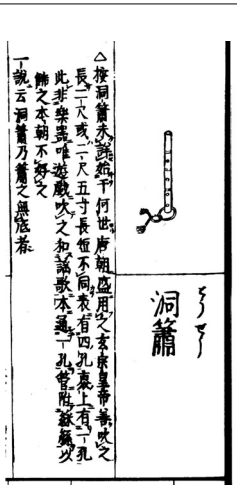 洞簫
とうせう
△按洞簫未詳始于何出唐朝盛用之玄宗皇帝善吹之
長二尺或一尺五寸長短不同表有四孔裏上有一孔
此非樂器唯遊戲吹之和謡歌本邊一孔管附綵繩以
飾之本朝不好之
一說云洞簫乃簫之無底者